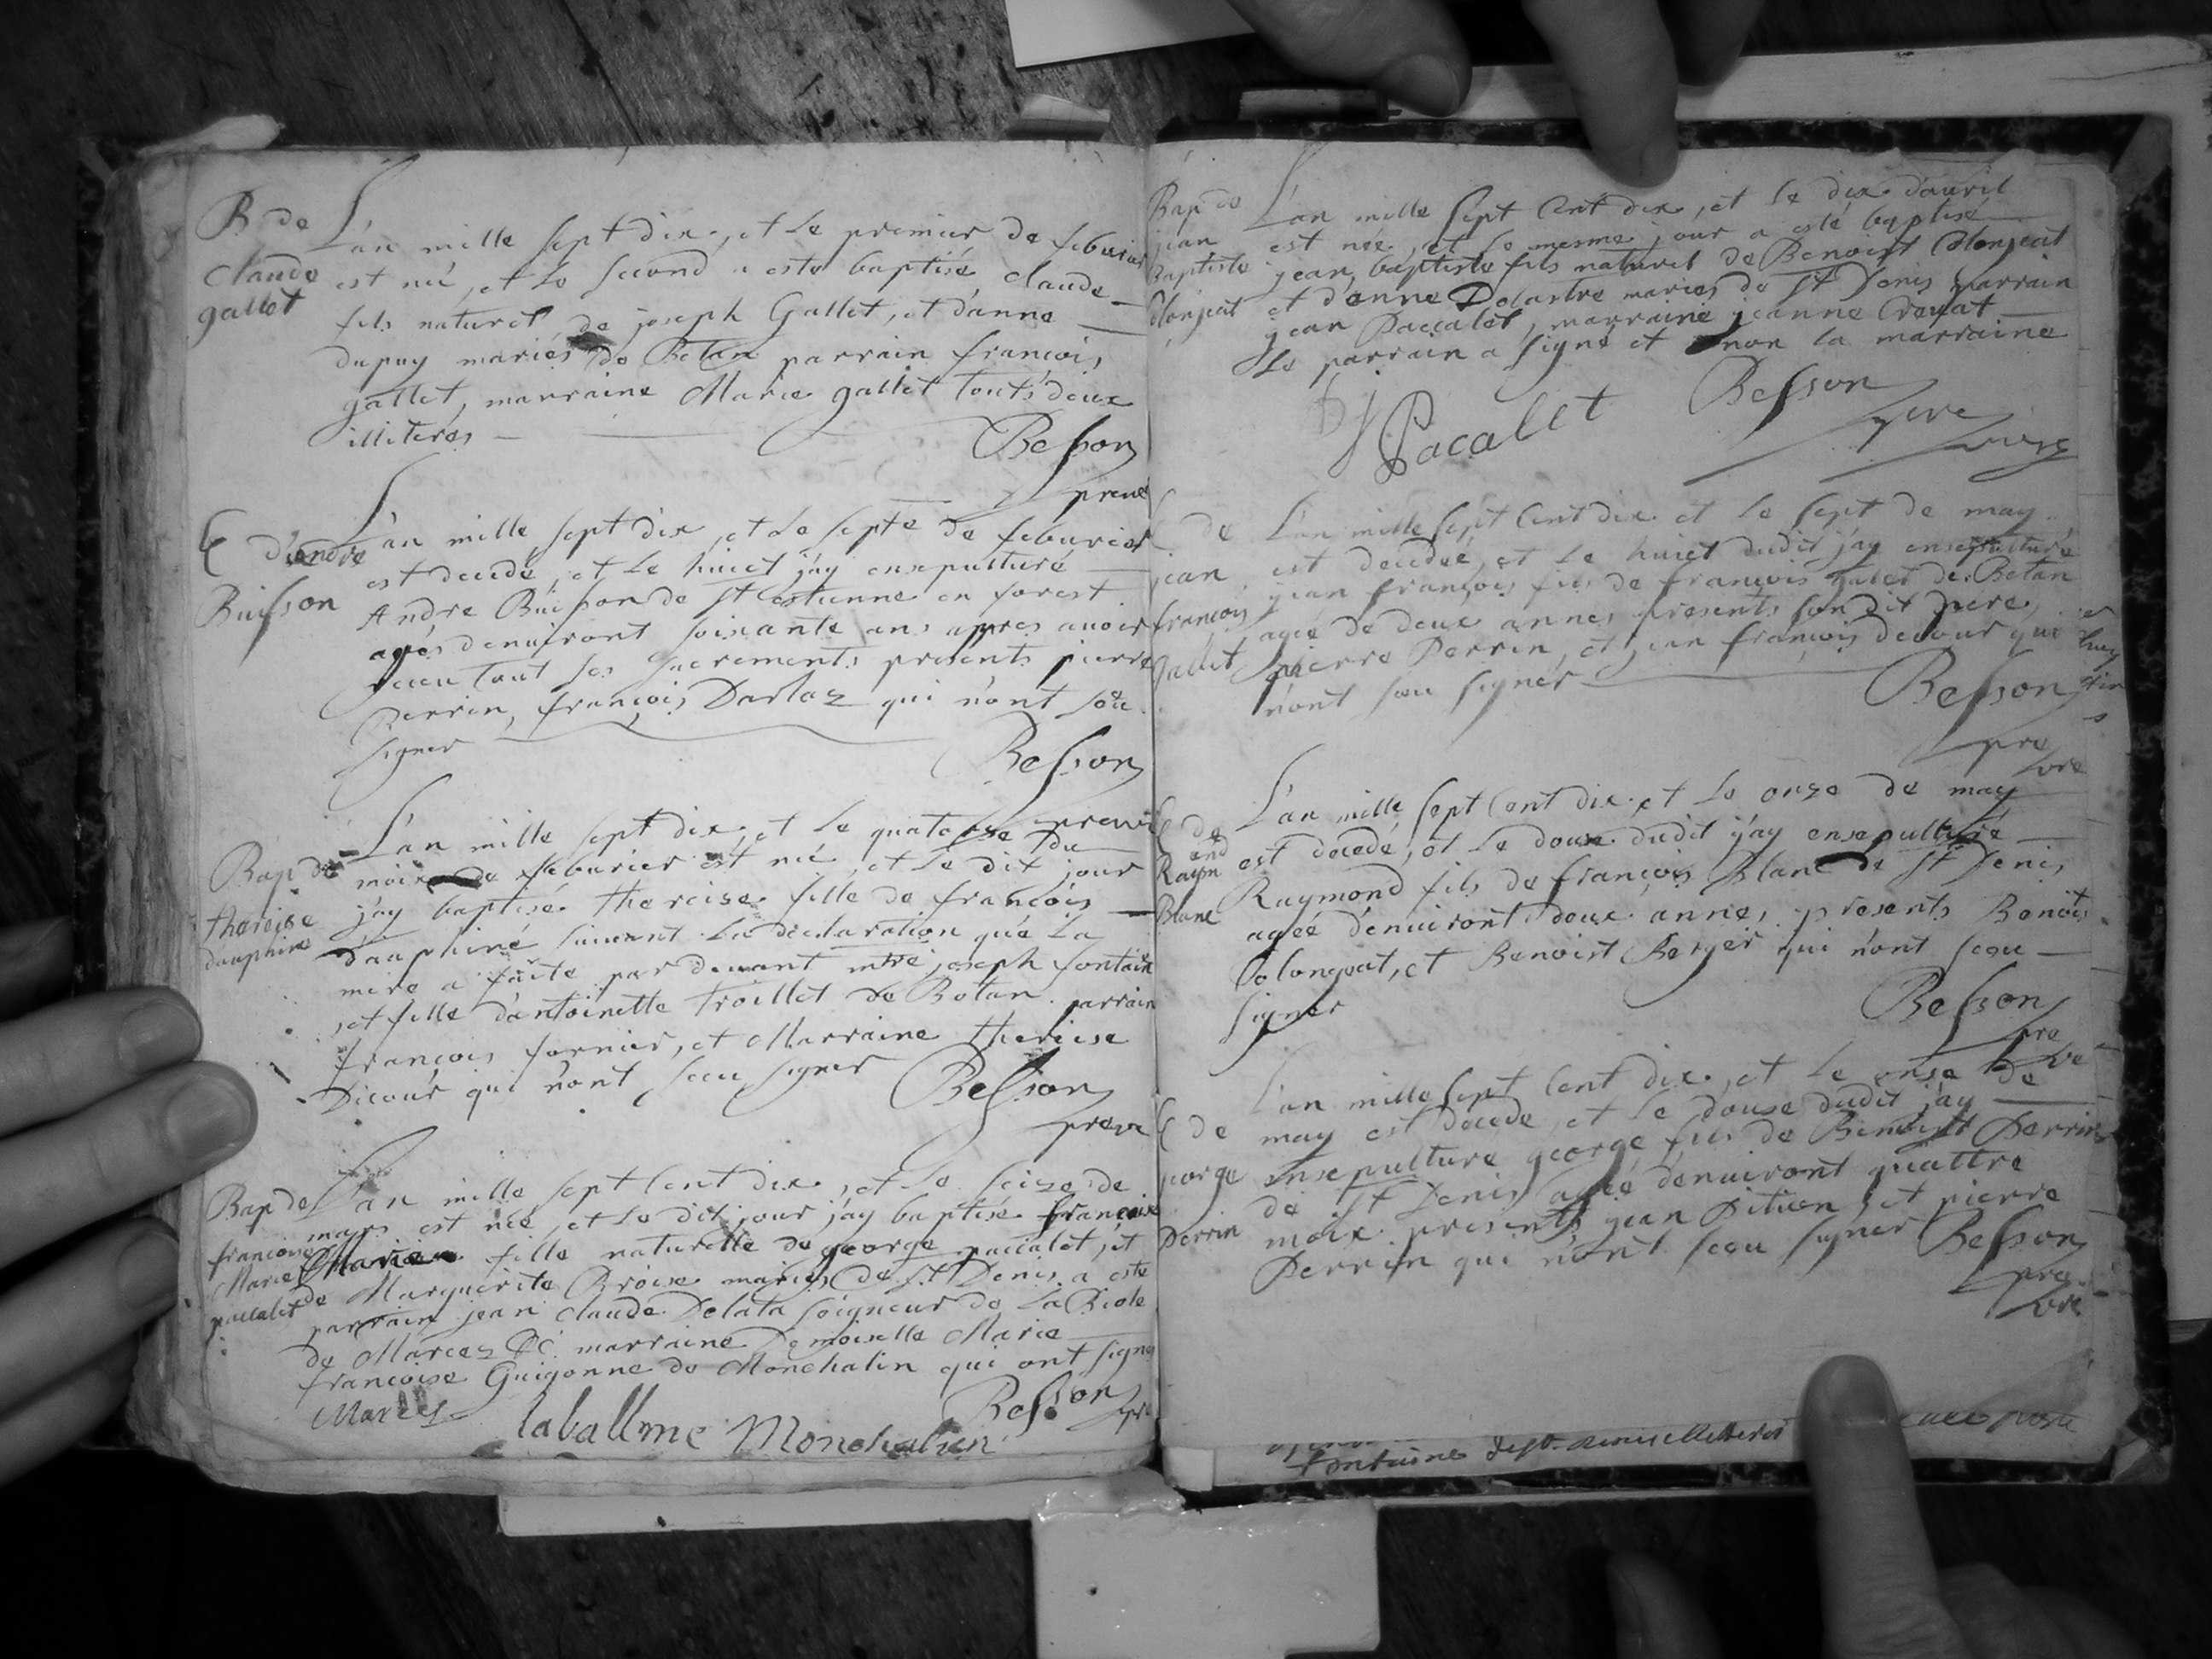 B de
Claude
gallet
L'an mille sept dix, et le premier de feburier
est né, et le second a esté baptisé Claude
fils naturel, de joseph Gallet, et d'anne
dupuy mariés de Botan parrain françois
gallet, marraine Marie gallet touts deux
illiterés
Besson
preve
E d'andre
Buisson
L'an mille sept dix, et le septe de feburier
est decedé, et le huict j'ay ensepulturé
Andre Buisson de st estienne en forest
agés denuiront soixante ans appres auoir
receu tout ses sacrements presents pierre
Perrin, françois Darloz qui n'ont sceu
signer
Besson
preve
Bap de
thereise
dauphine
L'an mille sept dix, et le quatorse du
mois de feburier est né, et le dit jour
j'ay baptisé thereise fille de françois
dauphiné suiuant la declaration que la
mere a faite par deuant mtre joseph fontaine
, et fille d'antoinette troillet de Botan parrain
françois fornier, et Marraine thereise
Dicour qui n'ont sceu signer
Besson
preve
Bap de
francoise
Marie
paccalet
L'an mille sept cent dix, et le seize de
mars est née, et le dit jour j'ay baptisé francoise
Marie fille naturelle de george paccalet, et
de Marguerite Broise mariés de st Denis a esté
parrain jean claude Delata seigneur de la Biole
de Marcez &c. marraine Demoiselle Marie
francoise Guigonne de Monchalin qui ont signé
Marcez
laballme Monchalin
Besson
pre
Bap de
jean
Baptiste
Blonjeat
L'an mille sept cent dix, et le dix d'auril
est née, et le mesme jour a esté baptisé
jean baptiste fils naturel de Benoist Blonjeat
et d'anne Delastre mariés de st Denis parrain
jean Paccalet, marraine jeanne Crouat
Le parrain a signé et non la marraine
J Pacalet
Besson
pre
vire
E de
jean
françois
gallet
L'an mille sept cent dix et le sept de may
est decedée, et le huict dudit j'ay ensepulturé
jean françois fils de françois galet de Botan
agée de deux annes presents son dit pere,
pierre Perrin, et jean françois decour qui
n'ont sceu signer
Besson
pre
vre
E de
Raymond
Blanc
L'an mille sept cent dix et le onze de may
est decedé, et le douse dudit j'ay ensepulturé
Raymond fils de françois Blanc de st Denis
agée denuiront deux annes presents Benoist
Bolongeat, et Benoist Berger qui n'ont sceu
signer
Besson
pre
vre
E de
george
Perrin
L'an mille sept cent dix, et le onse de
may est decedé, et le douse dudit j'ay
ensepulture george fils de Benoist Perrin
de st Denis agée denuiront quattre
mois presents jean Pition, et pierre
Perrin qui n'ont sceu signer
Besson
pre
vre
fontaine